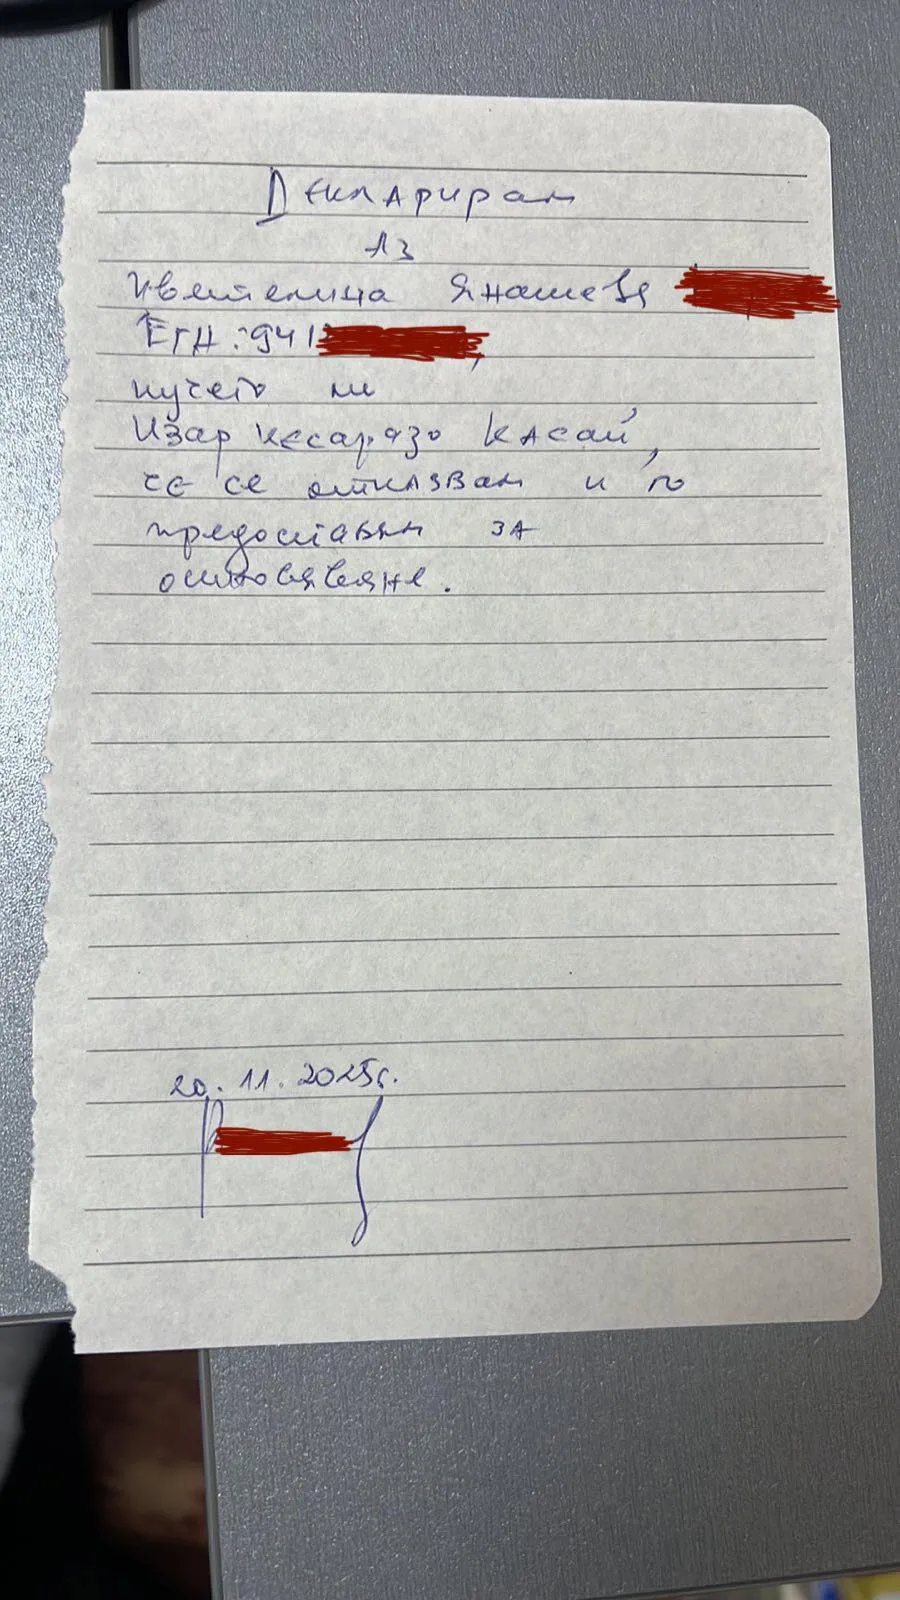 Декларирам
Аз
Цветелина Янашева
ЕГН: 941
кучето ми
Изар Кесаріязо Касай,
че се отказвам и го
предоставям за
осиновяване.
20.11.2025г.